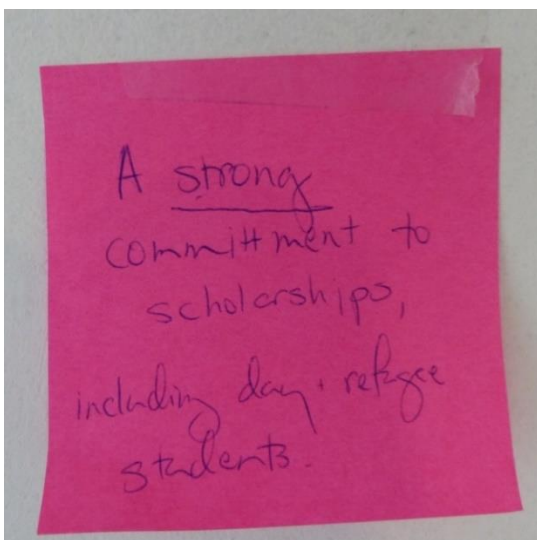 A strong
committment to
scholarships,
including day + refugee
students.